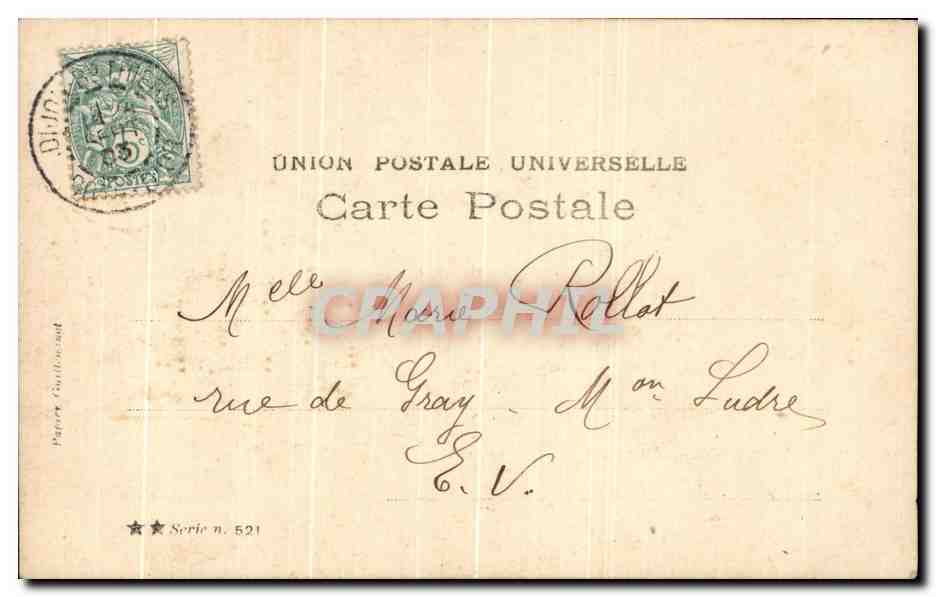 DIJON
03
5c
POSTES
UNION POSTALE UNIVERSELLE
Carte Postale
Melle Marie Rollot
rue de Gray - Mon Ludre
E. V.
CPAPHIL
Papier Guilleminot
★★ Serie n. 521